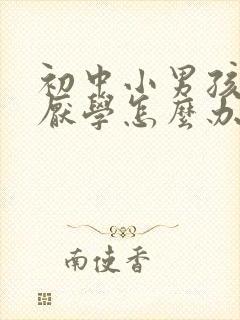 初中小男孩
厭學怎麼办
南使香